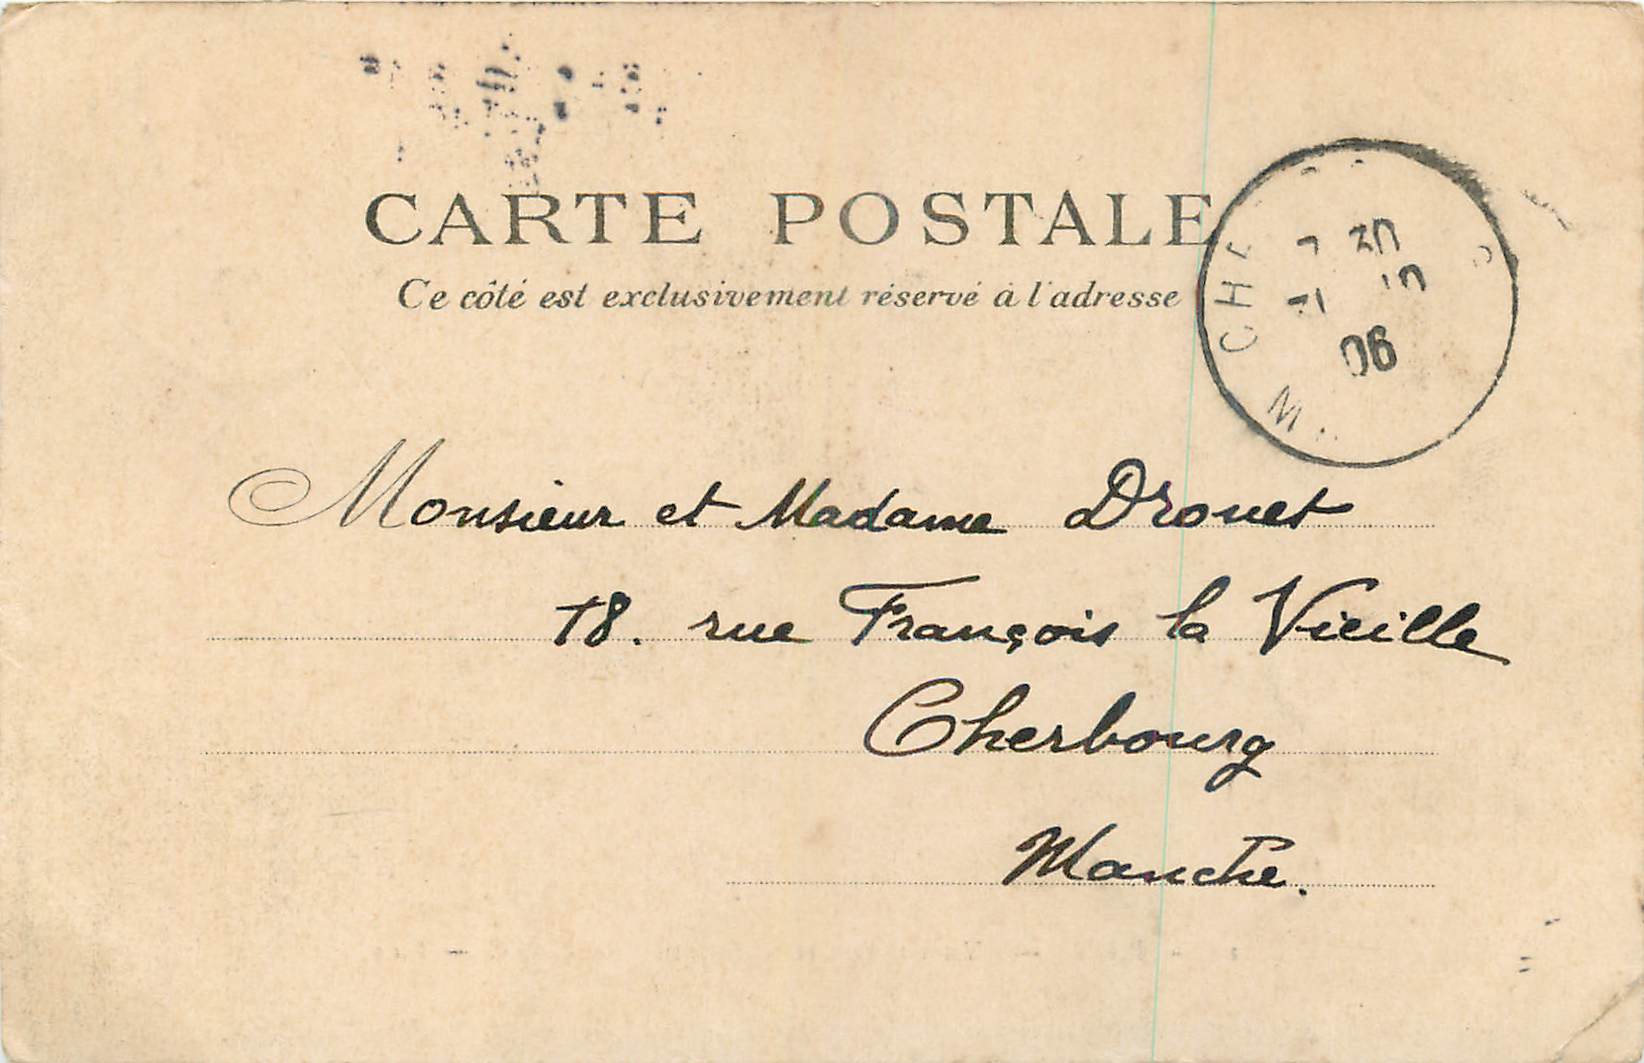 CARTE POSTALE
Ce côté est exclusivement réservé à l'adresse
06
Monsieur et Madame Drouet
18. rue François la Vieille
Cherbourg
Manche.